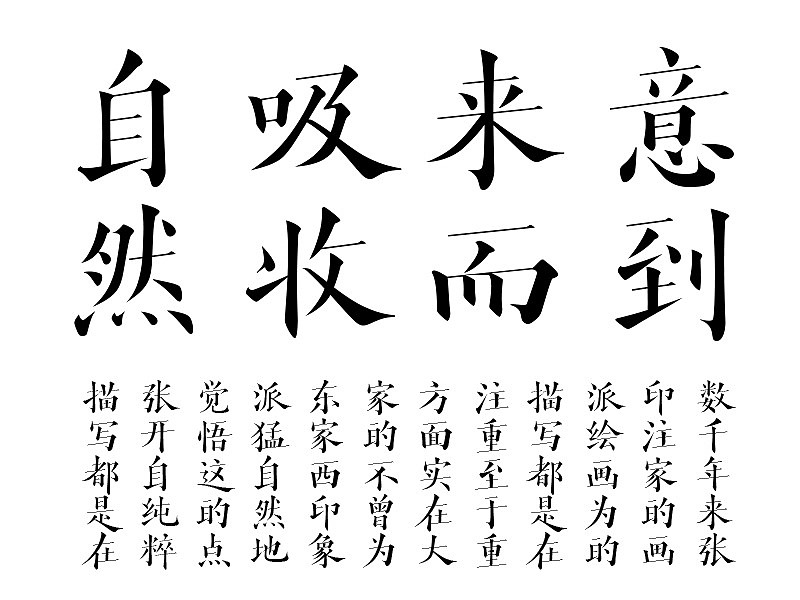 意到
来而
吸收
自然
数千年来张
印注家的画
派绘画为的
描写都是在
注重至于重
方面实在大
家的不曾为
东家西印象
派猛自然地
觉悟这的点
张开自纯粹
描写都是在